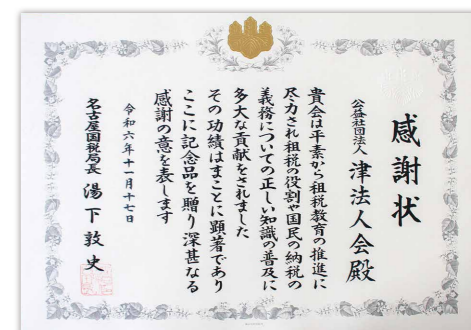 感謝状
公益社団法人 津法人会殿
貴会は平素から租税教育の推進に
尽力され租税の役割や国民の納税の
義務についての正しい知識の普及に
多大な貢献をされました
その功績はまことに顕著であり
ここに記念品を贈り深甚なる
感謝の意を表します
令和六年十一月十七日
名古屋国税局長 湯下敦史